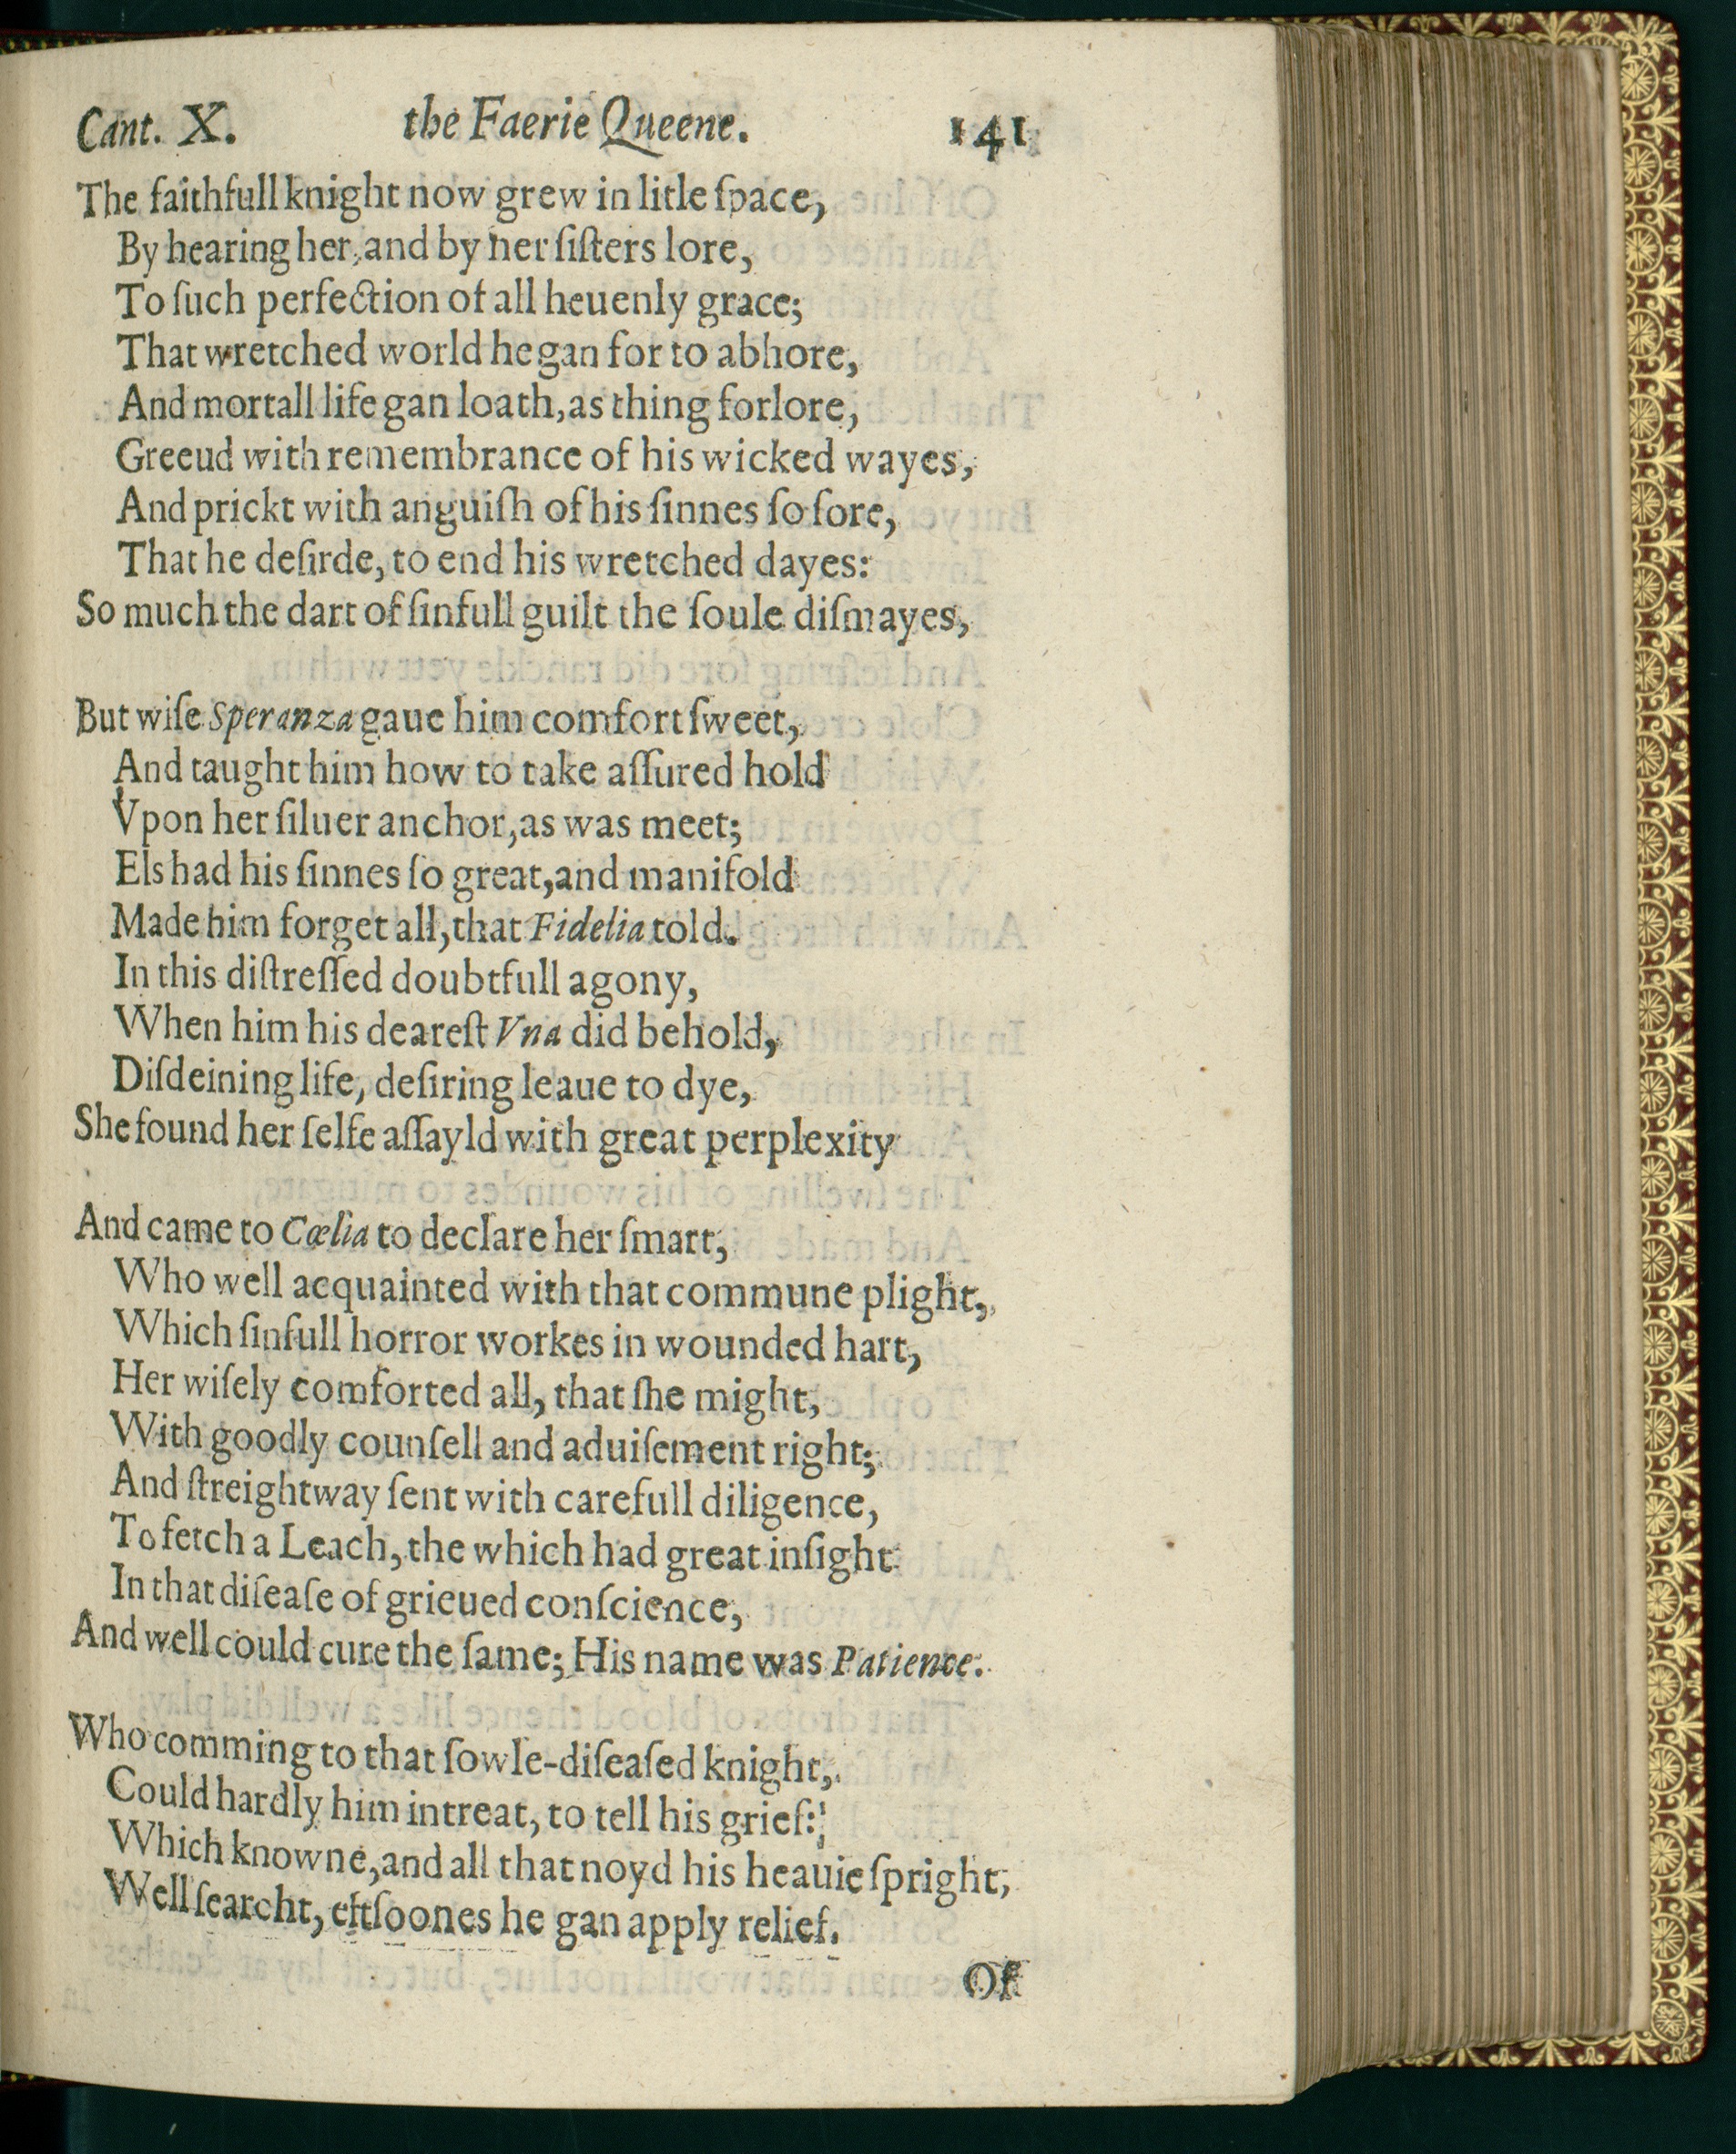 Cant. X. the Faerie Queene. 141
The faithfull knight now grew in litle ſpace,
By hearing her, and by her ſiſters lore,
To ſuch perfection of all heuenly grace;
That wretched world he gan for to abhore,
And mortall life gan loath, as thing forlore,
Greeud with remembrance of his wicked wayes,
And prickt with anguiſh of his ſinnes ſo ſore,
That he deſirde, to end his wretched dayes:
So much the dart of ſinfull guilt the ſoule diſmayes,
But wiſe Speranza gaue him comfort ſweet,
And taught him how to take aſſured hold
Vpon her ſiluer anchor, as was meet;
Els had his ſinnes ſo great, and manifold
Made him forget all, that Fidelia told.
In this diſtreſſed doubtfull agony,
When him his deareſt Vna did behold,
Diſdeining life, deſiring leaue to dye,
She found her ſelfe aſſayld with great perplexity
And came to Cœlia to declare her ſmart,
Who well acquainted with that commune plight,
Which ſinfull horror workes in wounded hart,
Her wiſely comforted all, that ſhe might,
With goodly counſell and aduiſement right;
And ſtreightway ſent with carefull diligence,
To fetch a Leach, the which had great inſight
In that diſeaſe of grieued conſcience,
And well could cure the ſame; His name was Patience.
Who comming to that ſowle-diſeaſed knight,
Could hardly him intreat, to tell his grief:
Which knowne, and all that noyd his heauie ſpright,
Well ſearcht, eftſoones he gan apply relief.
Of